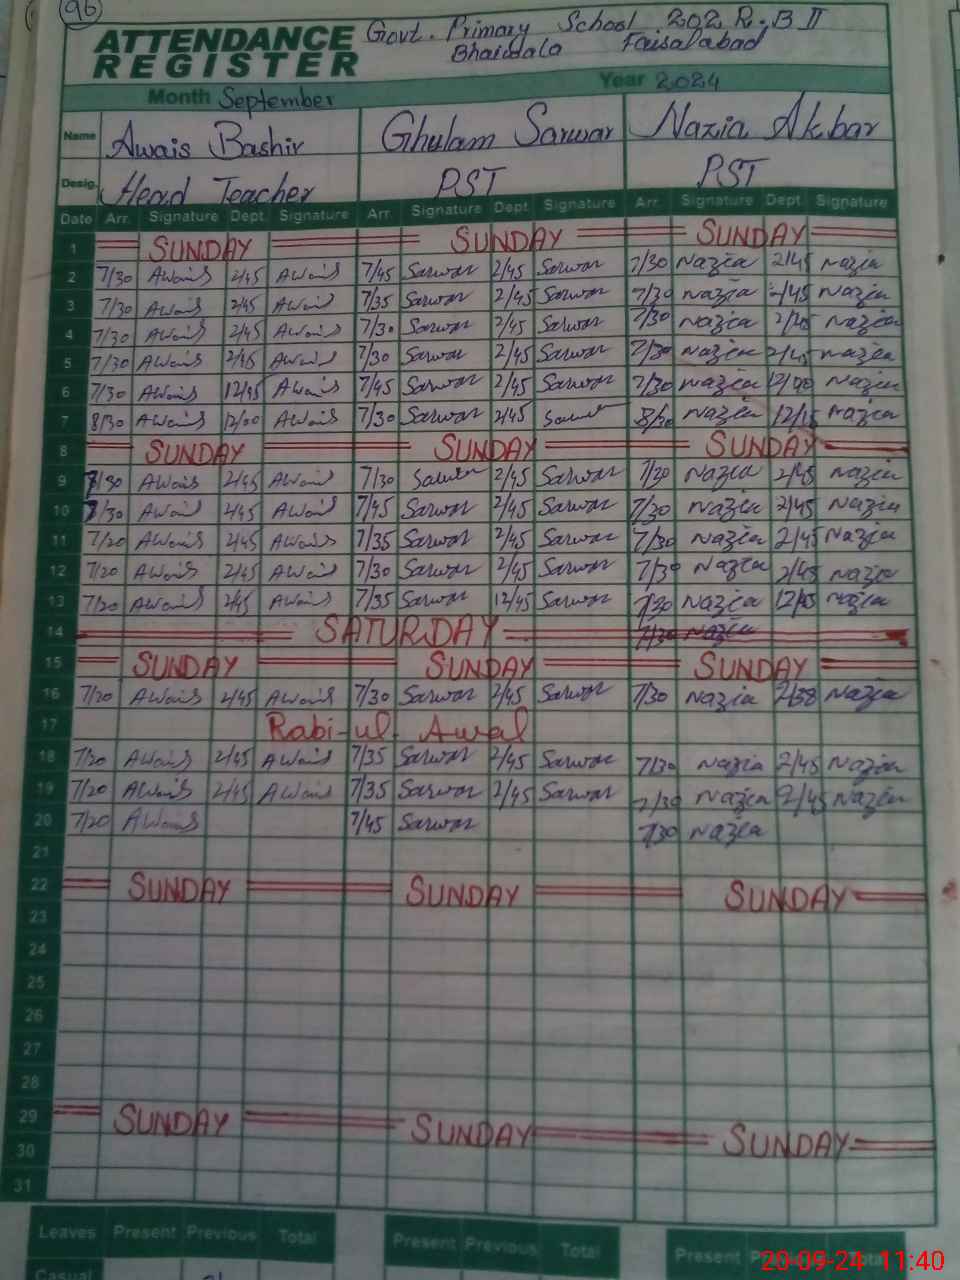 96
ATTENDANCE REGISTER
Govt. Primary School 202 R.B II
Bhaiwala Faisalabad
Month September Year 2024
Name Awais Bashir Ghulam Sarwar Nazia Akbar
Desig. Head Teacher PST PST
Date Arr. Signature Dept. Signature Arr. Signature Dept. Signature Arr. Signature Dept. Signature
1 SUNDAY SUNDAY SUNDAY
2 7/30 Awais 2/45 Awais 7/45 Sarwar 2/45 Sarwar 7/30 Nazia 2/45 Nazia
3 7/30 Awais 2/45 Awais 7/35 Sarwar 2/45 Sarwar 7/30 Nazia 2/45 Nazia
4 7/30 Awais 2/45 Awais 7/30 Sarwar 2/45 Sarwar 7/30 Nazia 2/45 Nazia
5 7/30 Awais 2/45 Awais 7/30 Sarwar 2/45 Sarwar 7/30 Nazia 2/45 Nazia
6 7/30 Awais 12/45 Awais 7/45 Sarwar 2/45 Sarwar 7/30 Nazia Nazia
7 8/30 Awais 12/00 Awais 7/30 Sarwar 2/45 8/30 Nazia 12/15 Nazia
8 SUNDAY SUNDAY SUNDAY
9 Awais 2/45 Awais 7/30 2/45 Sarwar 7/30 Nazia 2/45 Nazia
10 Awais 2/45 Awais 7/45 Sarwar 2/45 Sarwar 7/30 Nazia 2/45 Nazia
11 7/20 Awais 2/45 Awais 7/35 Sarwar 2/45 Sarwar 7/30 Nazia 2/45 Nazia
12 7/20 Awais 2/45 Awais 7/30 Sarwar 2/45 Sarwar 7/30 Nazia 2/45 Nazia
13 7/20 Awais 2/45 Awais 7/35 Sarwar 12/45 Sarwar 7/30 Nazia 12/45 Nazia
14 SATURDAY 7/30 Nazia
15 SUNDAY SUNDAY SUNDAY
16 7/20 Awais 2/45 Awais 7/30 Sarwar 2/45 Sarwar 7/30 Nazia Nazia
17 Rabi-ul-Awal
18 7/20 Awais 2/45 Awais 7/35 Sarwar 2/45 Sarwar 7/30 Nazia 2/45 Nazia
19 7/20 Awais 2/45 Awais 7/35 Sarwar 2/45 Sarwar 7/30 Nazia 2/45 Nazia
20 7/20 Awais 7/45 Sarwar 7/30 Nazia
21
22 SUNDAY SUNDAY SUNDAY
23
24
25
26
27
28
29 SUNDAY SUNDAY SUNDAY
30
31
Leaves Present Previous Total Present Previous Total Present Previous Total
Casual
20-09-24 11:40